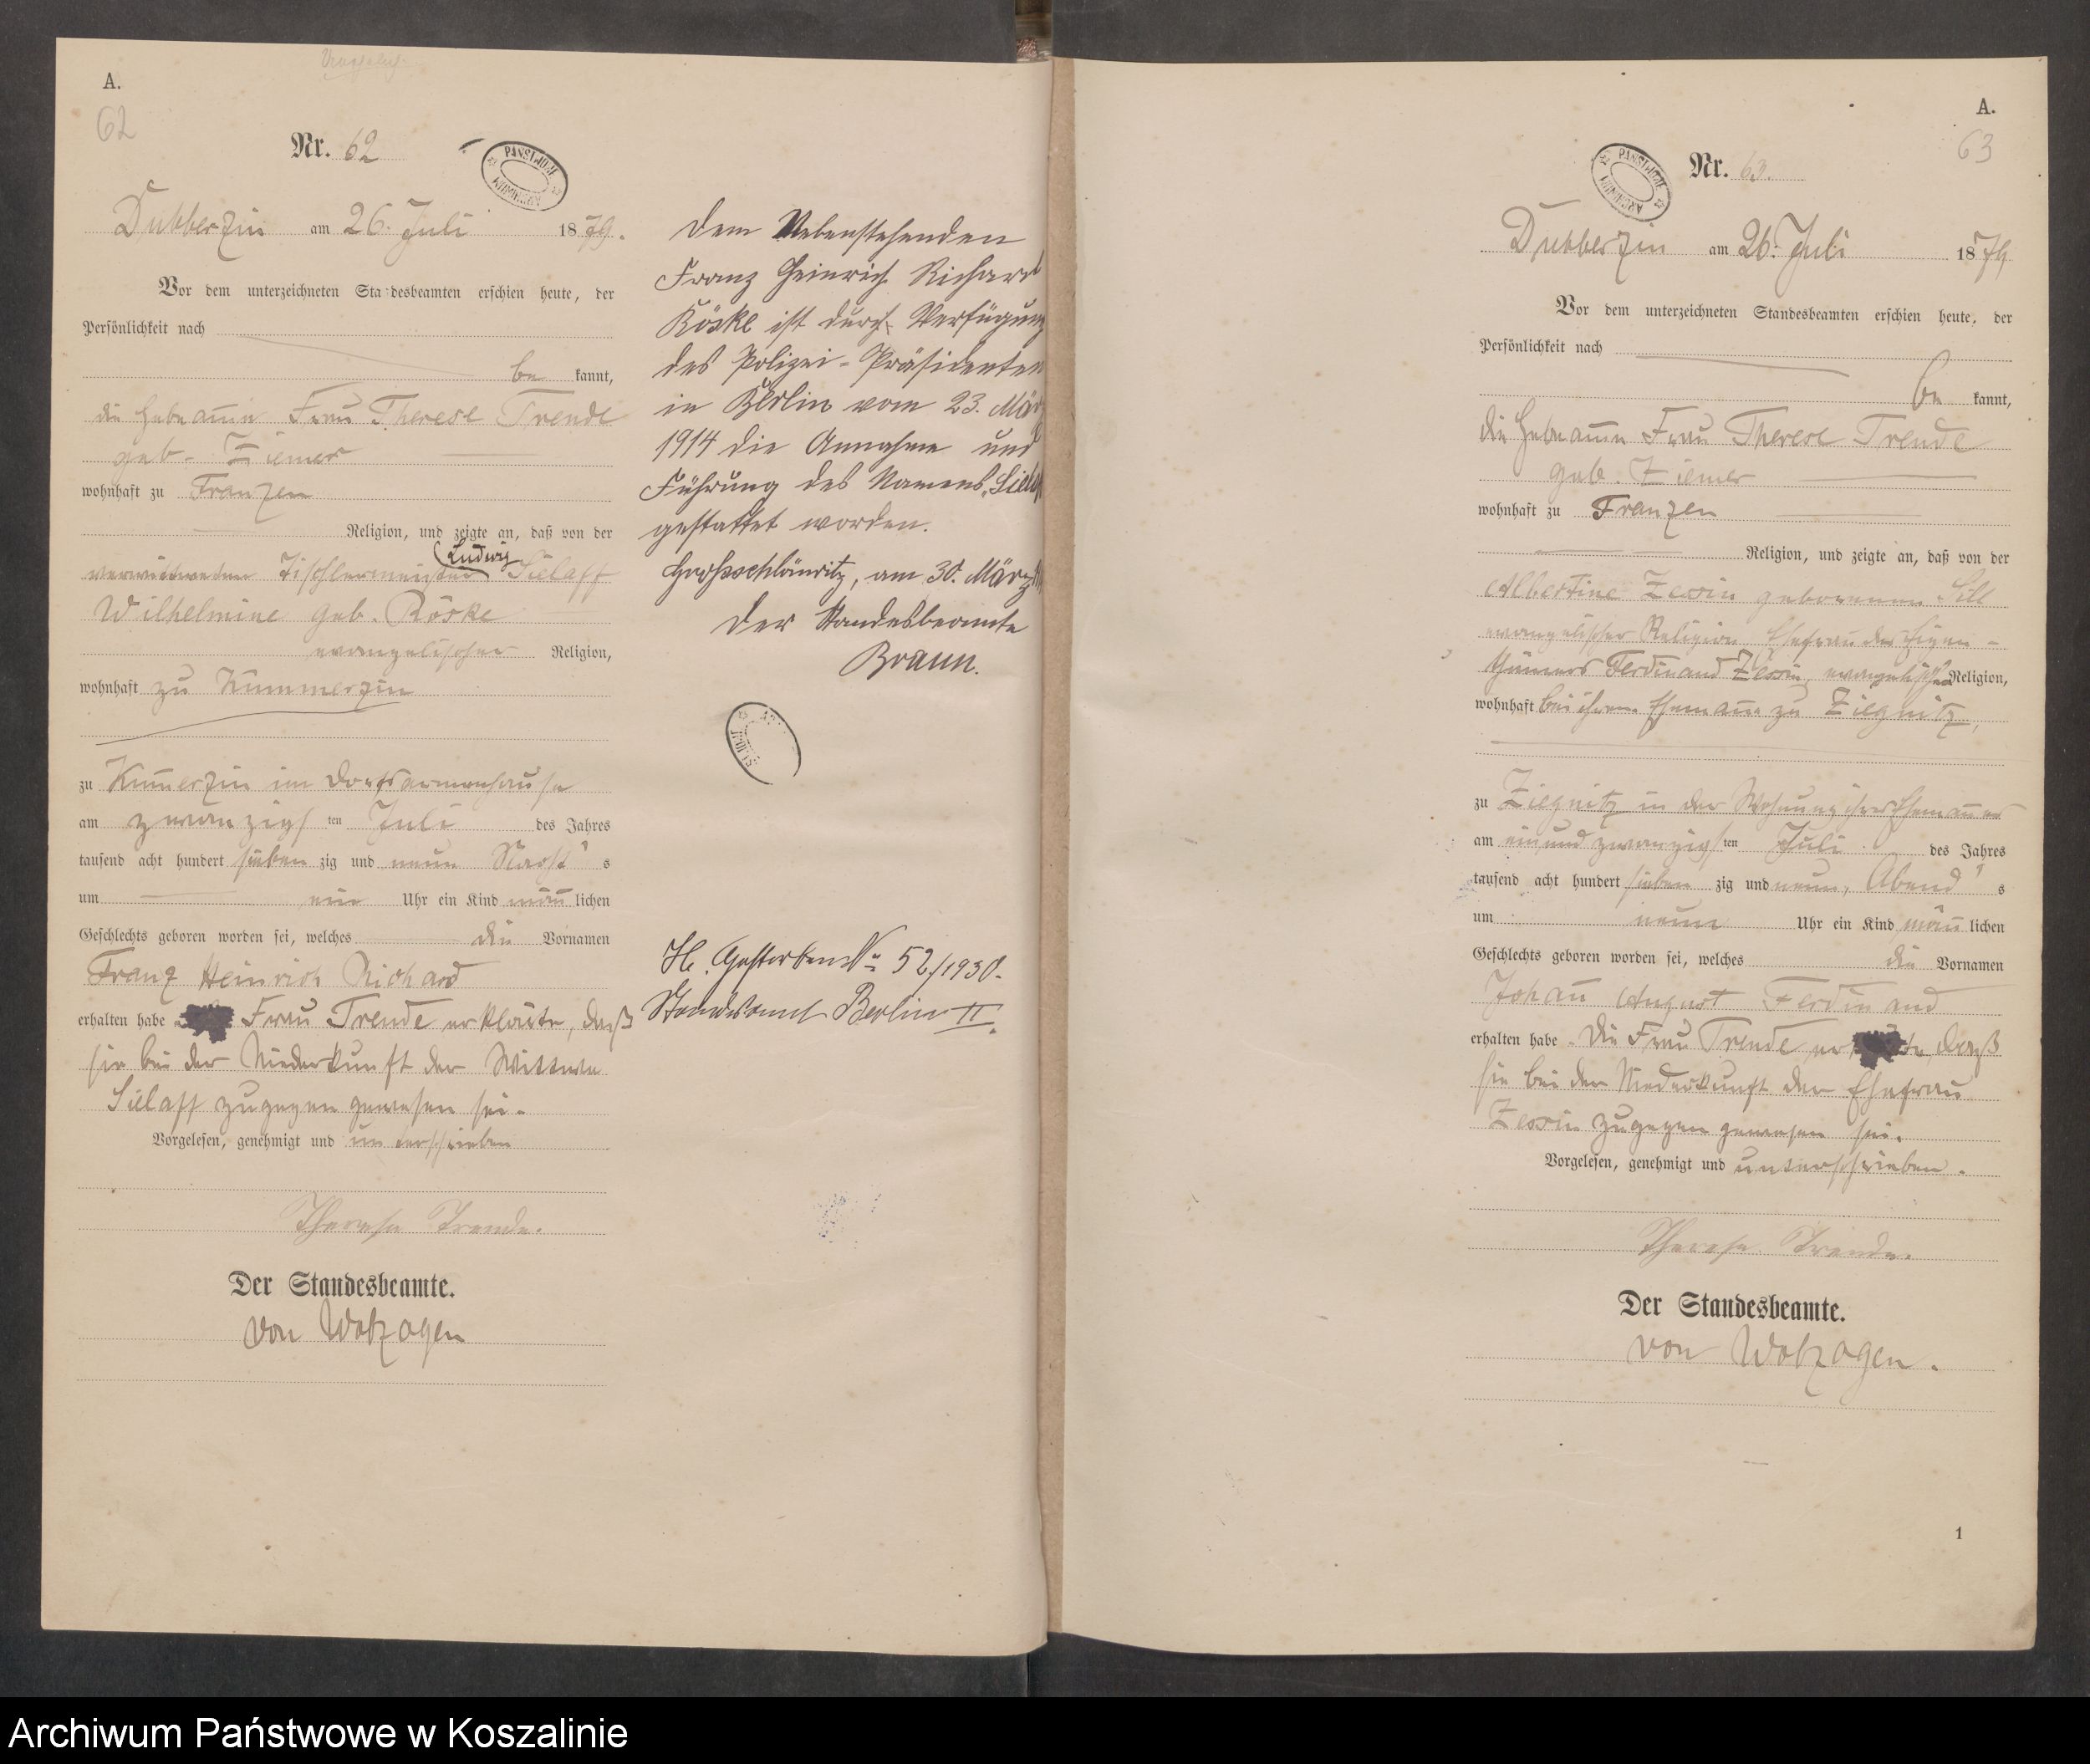 A.
62
Nr. 62
PANSTWOWE ARCHIWUM
Dubberzin am 26. Juli 1879.
Vor dem unterzeichneten Standesbeamten erschien heute, der
Persönlichkeit nach
be kannt,
die Hebeam̅e Frau Therese Trende
geb. Ziemer
wohnhaft zu Franzen
Religion, und zeigte an, daß von der
Ludwig
verwittweten Tischlermeister Sielaff
Wilhelmine geb. Röske
evangelischer Religion,
wohnhaft zu Kummerzin
zu Kum̅erzin im Dorfarmenhause
am zwanzigs ten Juli des Jahres
tausend acht hundert sieben zig und neun Nacht s
um ein Uhr ein Kind män̅ lichen
Geschlechts geboren worden sei, welches die Vornamen
Franz Heinrich Richard
erhalten habe Frau Trende erklärte, daß
sie bei der Niederkunft der Wittwe
Sielaff zugegen gewesen sei.
Vorgelesen, genehmigt und unterschrieben
Therese Trende.
Der Standesbeamte.
von Wolzogen
Dem Nebenstehenden
Franz Heinrich Richard
Röske ist durch Verfügung
des Polizei-Präsidenten
in Berlin vom 23. März
1914 die Annahme und
Führung des Namens
gestattet worden.
am 30. März
Der Standesbeamte
Braun.
H. Gestorben No 52/1930.
Standesamt Berlin II.
A.
63
Nr. 63.
PANSTWOWE ARCHIWUM
Dubberzin am 26. Juli 1879
Vor dem unterzeichneten Standesbeamten erschien heute, der
Persönlichkeit nach
be kannt,
die Hebeam̅e Frau Therese Trende
geb. Ziemer
wohnhaft zu Franzen
Religion, und zeigte an, daß von der
Albertine Zessin geborenen Sill
evangelischer Religion, Ehefrau des Eigen-
thümers Ferdinand Zessin, evangelischer Religion,
wohnhaft bei ihrem Ehemann zu Ziegnitz,
zu Ziegnitz in der Wohnung ihres Ehemannes
am einundzwanzigs ten Juli des Jahres
tausend acht hundert sieben zig und neun, Abend s
um neun Uhr ein Kind män̅ lichen
Geschlechts geboren worden sei, welches die Vornamen
Johan̅ August Ferdinand
erhalten habe. Die Frau Trende erklärte, daß
sie bei der Niederkunft der Ehefrau
Zessin zugegen gewesen sei.
Vorgelesen, genehmigt und unterschrieben.
Therese Trende.
Der Standesbeamte.
von Wolzogen.
1
Archiwum Państwowe w Koszalinie